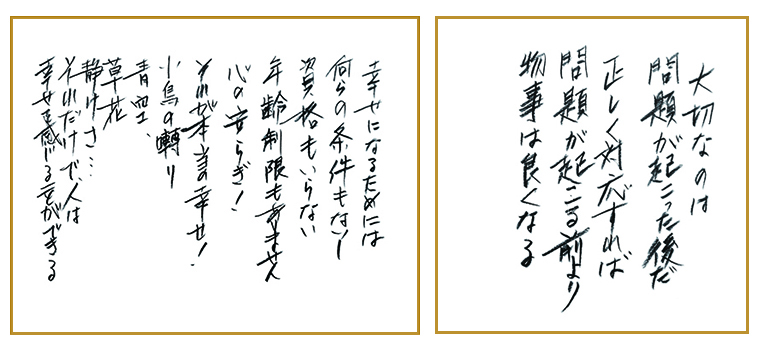 幸せになるためには
何らの条件もない!
資格もいらない
年齢制限もありません
心の安らぎ!
それが本当の幸せ!
小鳥の囀り
青空、
草花
静けさ…
それだけで、人は
幸せを感じる事ができる
大切なのは
問題が起こった後だ
正しく対応すれば
問題が起こる前より
物事は良くなる